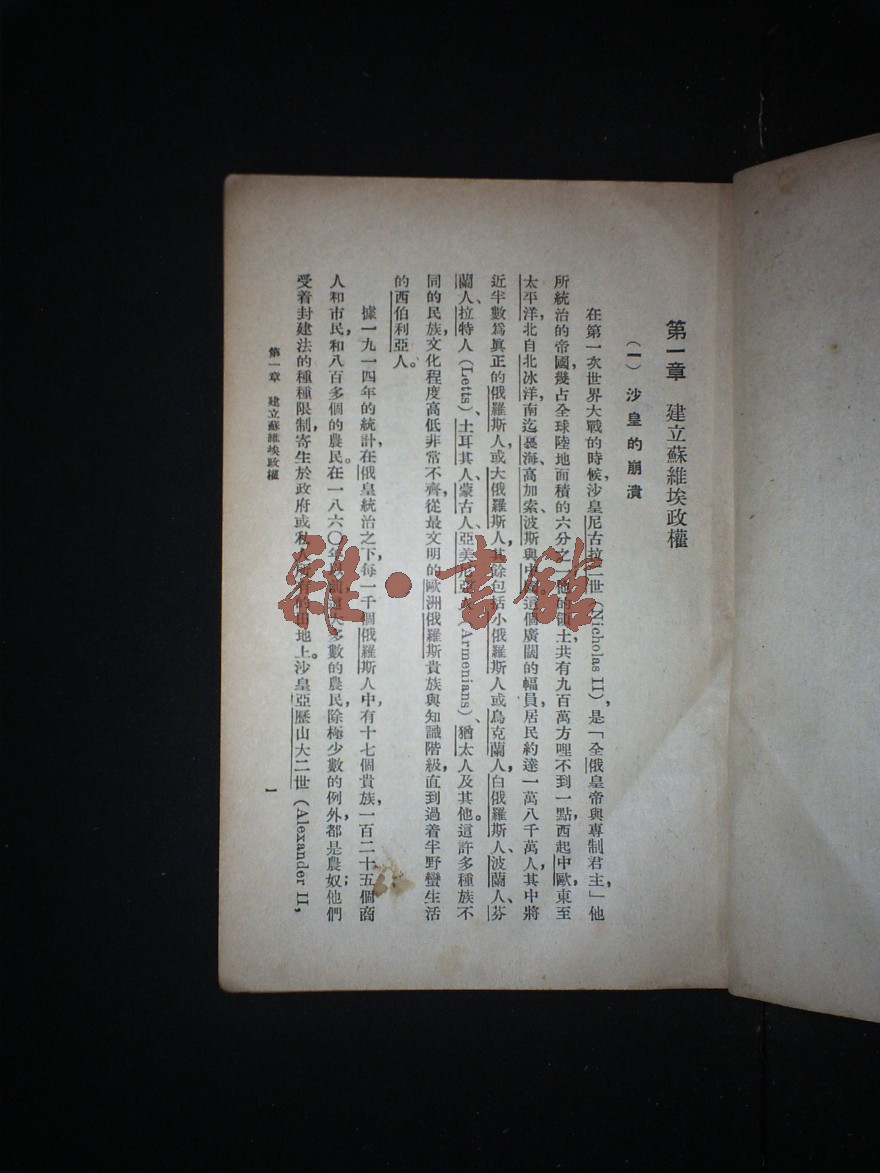 第一章　建立蘇維埃政權
（一）沙皇的崩潰
在第一次世界大戰的時候，沙皇尼古拉二世（Nicholas II），是「全俄皇帝與專制君主，」他
所統治的帝國，幾占全球陸地面積的六分之一。他的領土共有九百萬方哩不到一點，西起中歐，東至
太平洋，北自北冰洋，南迄裏海、高加索、波斯與中國。這個廣闊的幅員，居民約達一萬八千萬人，其中將
近半數爲眞正的俄羅斯人，或大俄羅斯人，其餘包括小俄羅斯人或烏克蘭人，白俄羅斯人、波蘭人、芬
蘭人、拉特人（Letts）、土耳其人、蒙古人、亞美尼亞人（Armenians）、猶太人及其他。這許多種族不
同的民族，文化程度高低非常不齊，從最文明的歐洲俄羅斯貴族與知識階級，直到過着半野蠻生活
的西伯利亞人。
據一九一四年的統計，在俄皇統治之下，每一千個俄羅斯人中，有十七個貴族，一百二十五個商
人和市民，和八百多個的農民。在一八六〇年以前，這大多數的農民，除極少數的例外，都是農奴；他們
受着封建法的種種限制，寄生於政府或私人所有的田地上。沙皇亞歷山大二世（Alexander II,
第一章　建立蘇維埃政權
1
雜·書館